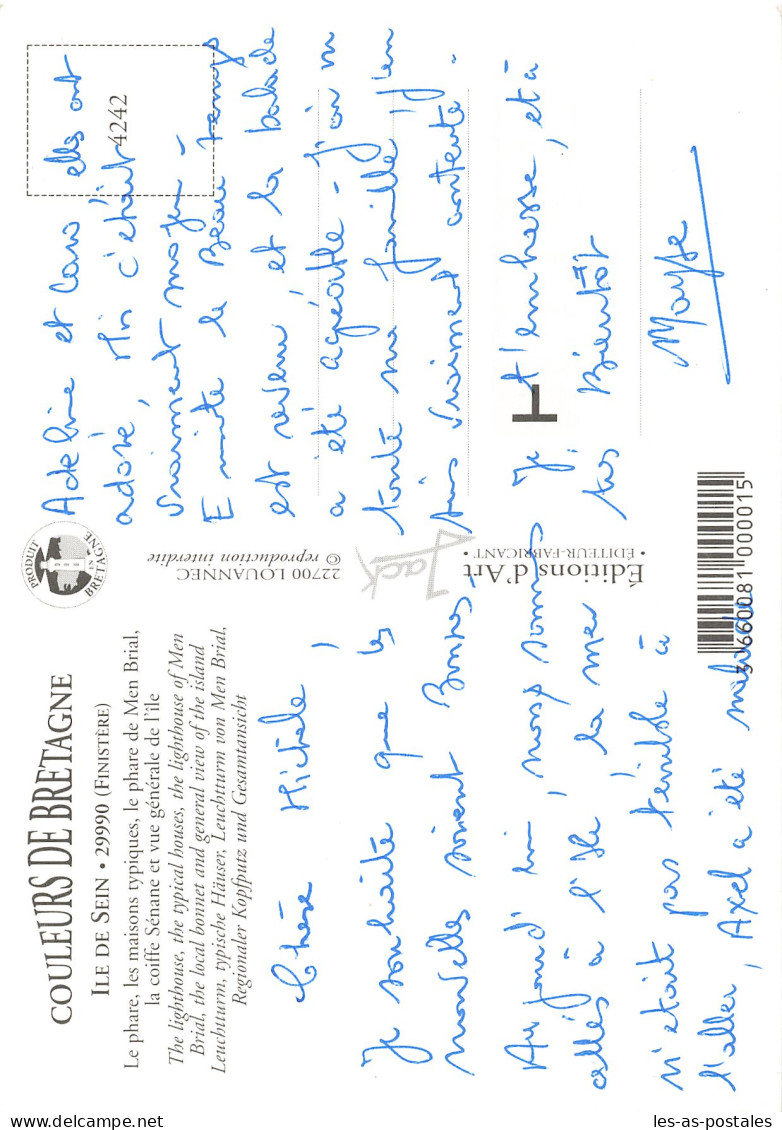 COULEURS DE BRETAGNE
ILE DE SEIN • 29990 (FINISTÈRE)
Le phare, les maisons typiques, le phare de Men Brial,
la coiffe Sénane et vue générale de l'île
The lighthouse, the typical houses, the lighthouse of Men
Brial, the local bonnet and general view of the island
Leuchtturm, typische Häuser, Leuchtturm von Men Brial,
Regionaler Kopfputz und Gesamtansicht
Chère Michèle,
Je souhaite que les
nouvelles soient Bonnes.
Aujourd'hui, nous sommes
allés à l'île, la mer
n'était pas terrible à
l'aller, Axel a été malade
PRODUIT EN BRETAGNE
22700 LOUANNEC
© reproduction interdite
Jack
Éditions d'Art
• ÉDITEUR-FABRICANT •
3 660081 000015
4242
Adeline et elles ont
adoré, c'était
vraiment moyen -
Ensuite le Beau temps
est revenu et la balade
a été agréable - J'ai vu
toute ma famille, j'en
suis vraiment contente.
Je t'embrasse, et à
très Bientôt
Mayse
les-as-postales.com